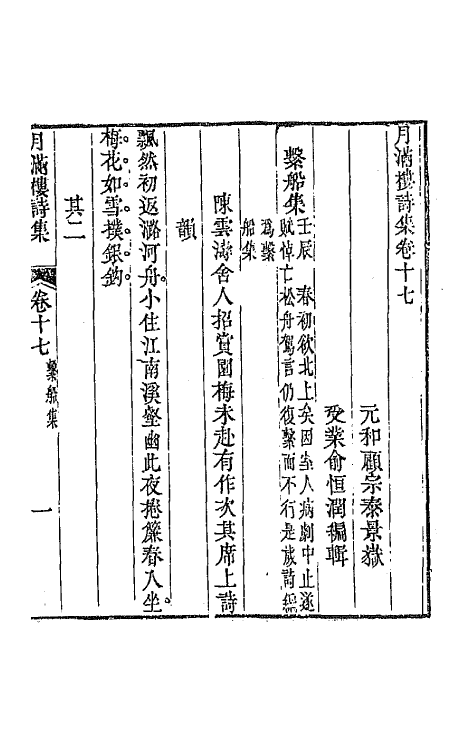 月滿樓詩集卷十七
元和顧宗泰景嶽
受業俞恒潤編輯
繫船集壬辰春初欲北上矣因室人病劇中止遂
賦悼亡松舟駕言仍復繫而不行是歲詩編
爲繫
船集
陳雲濤舍人招賞園梅未赴有作次其席上詩
韻
飄然初返潞河舟小住江南溪壑幽此夜捲簾春入坐
梅花如雪撲銀鈎
其二
月滿樓詩集 卷十七 繫船集 一